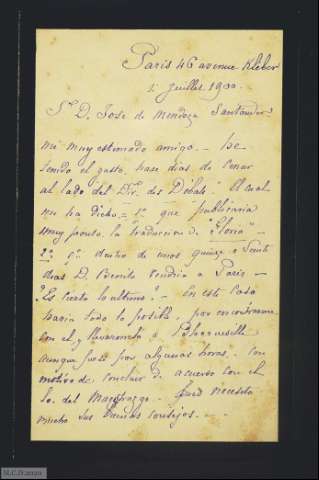 Paris 46 avenue Kléber
2 juillet 1900
Sr. D. José de Mendoza Santander
mi muy estimado amigo. - he
tenido el gusto, hace dias de cenar
al lado del Dtr. des Débats. El cual
me ha dicho - 1º que publicaria
muy pronto la traduccion de "Gloria" -
2º qº dentro de unos quince o veinte
dias D. Benito vendria a Paris -
"Es cierto lo ultimo?" - En este caso
haria todo lo posible, por encontrarme
con el, y llevaremelo a
aunque fuese por algunas horas, con
motivo de concluir de acuerdo con el
lo del pues necesito
mucho sus buenos consejos. -